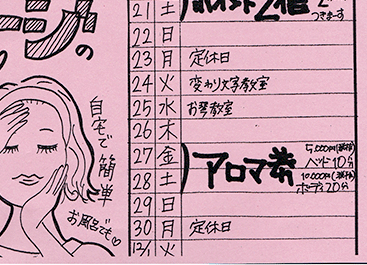 21 土 ポイント2倍
つきまーす
22 日
23 月 定休日
24 火 変わり文字教室
25 水 お琴教室
26 木
27 金
28 土
アロマ券
5,000円
ベッド10分
10,000円
ボディ20分
29 日
30 月 定休日
12/1 火
ージの
自宅で
簡単
お風呂でも